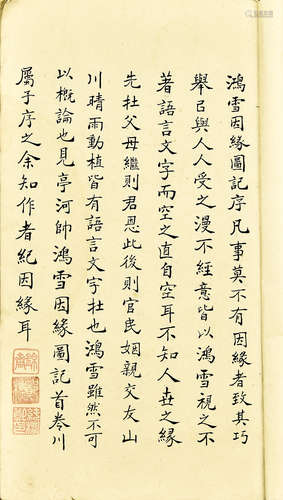 鴻雪因緣圖記序凡事莫不有因緣者致其巧
舉㠯與人人受之漫不經意皆以鴻雪視之不
著語言文字而空之直自空耳不知人世之緣
先杜父母繼則君恩此後則官民姻親交友山
川晴雨動植皆有語言文字杜也鴻雪雖然不可
以概論也見亭河帥鴻雪因緣圖記首卷川
屬予序之余知作者紀因緣耳